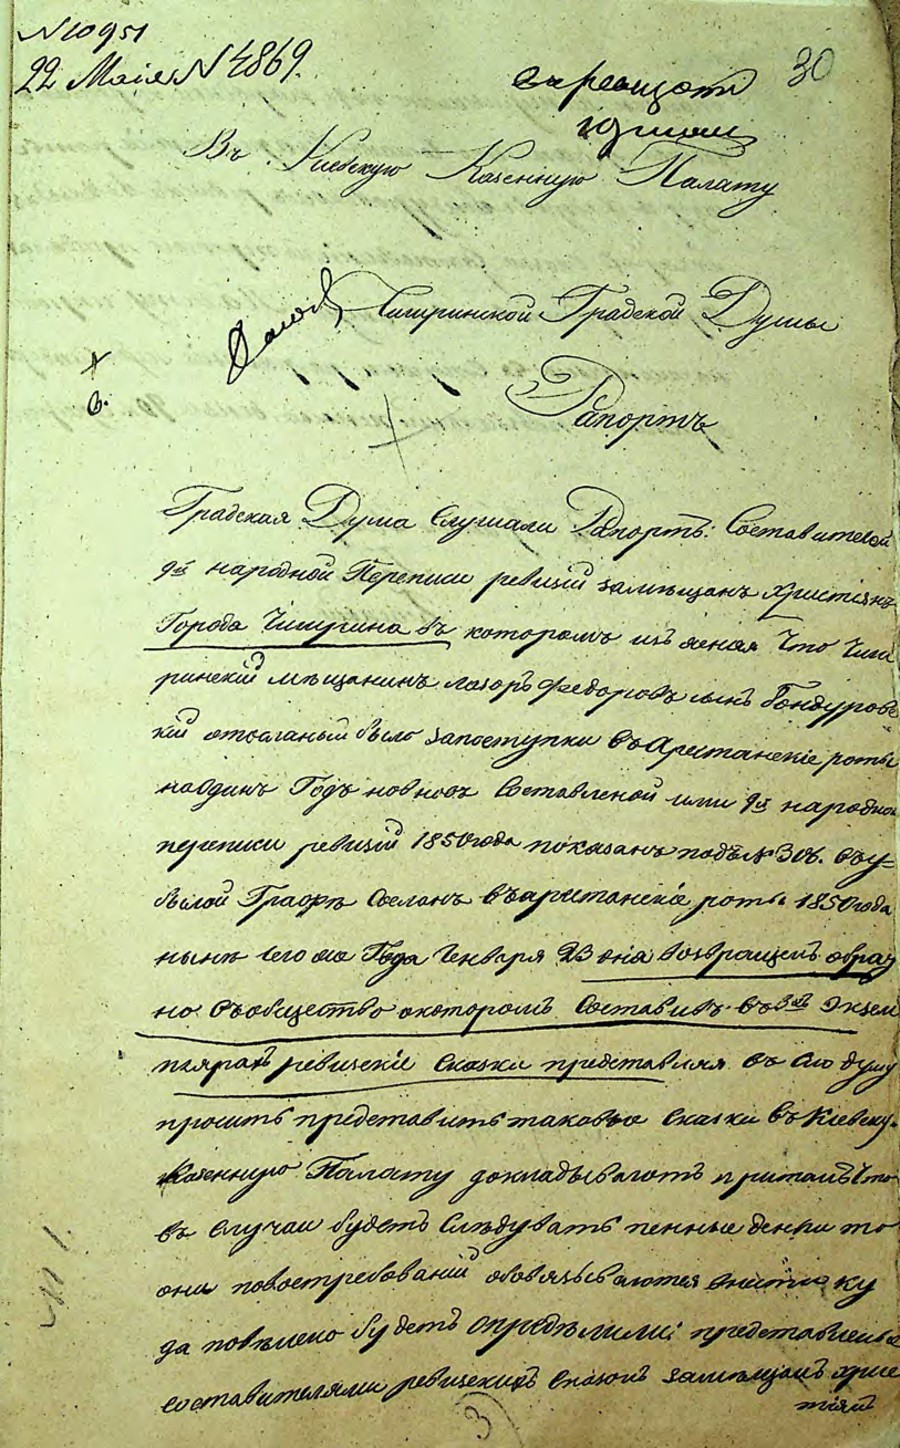 N 10951
22 Маія N 4869.
30
Въ Кіевскую Казенную Палату
Чигринской Градской Думы
Рапортъ
Градская Дума Слушали Рапортъ: Составителей
9й народной Переписи ревизіи замѣщанъ христіянъ
Города Чигрина въ которомъ изъясняя Что Чиги
ринскій мѣщанинъ Лазоръ Федоровъ сынъ Бондуровс
кій отосланый было запоступки въ Арестанскіе роты
наодинъ Годъ новновь Составленой ими 9й народной
переписи ревизіи 1850 года показанъ подъ № 306. въ у=
былой Графѣ Сосланъ въ арестанскіе роты 1850 года
нынѣ сего же Года Генваря 23 дня возвращенъ обрат
но въ общество окоторомъ Составивъ въ 3хъ Экзем
плярахъ ревизскіе Сказки представляя въ сію думу
просить представить таковые сказки въ Кіевску
Казенную Палату докладываютъ притомъ Что
въ Случаи будетъ Слѣдувать пенные деньги то
они повостребованій обовязываются внести ку
да повѣлено будетъ опредѣлили: представленые
составителями ревизскихъ сказокъ замѣщанъ хрис
тіянъ
3